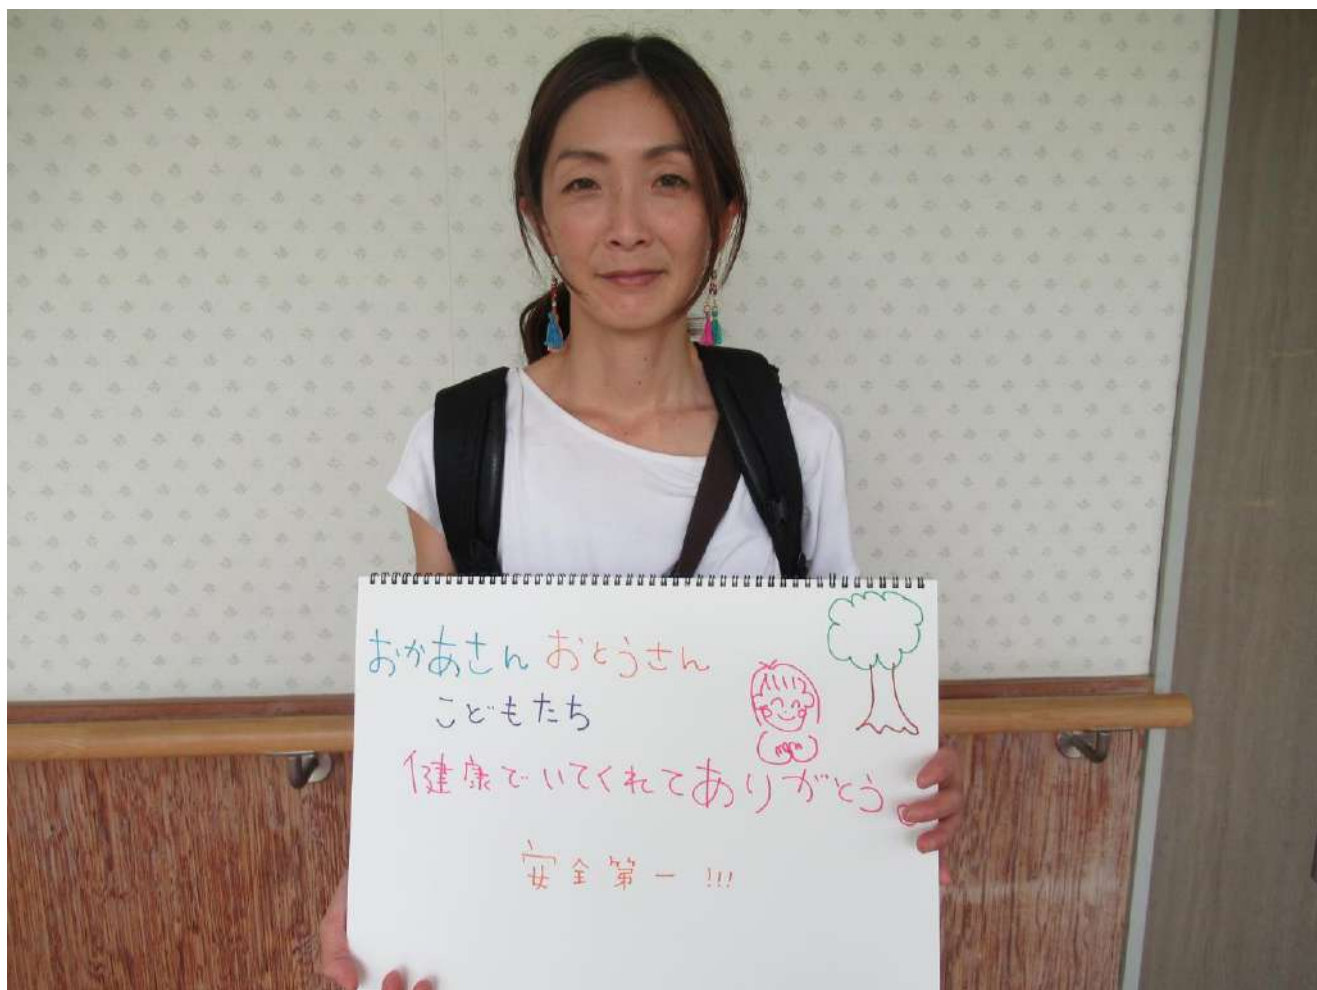 おかあさん おとうさん
こどもたち
健康でいてくれてありがとう。
安全第一!!!